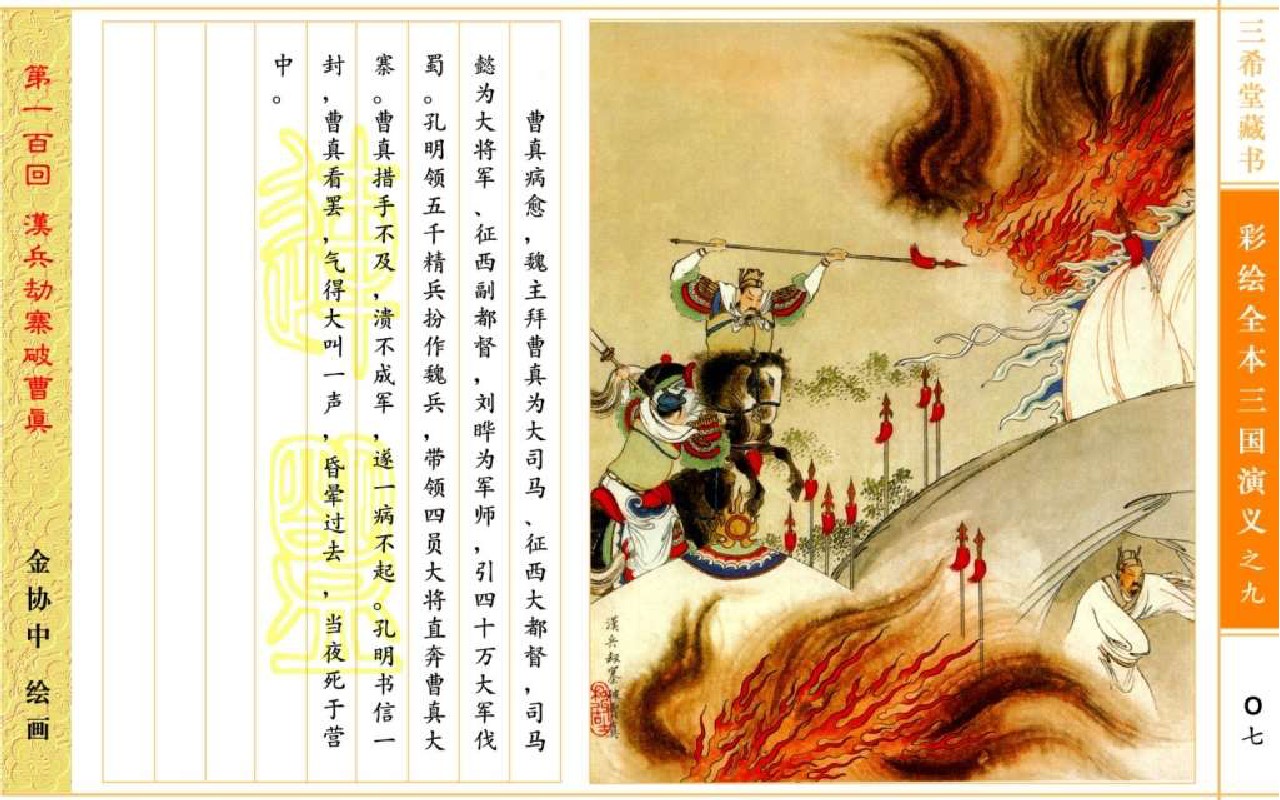 三希堂藏书
彩绘全本三国演义之九
〇七
曹真病愈，魏主拜曹真为大司马、征西大都督，司马
懿为大将军、征西副都督，刘晔为军师，引四十万大军伐
蜀。孔明领五千精兵扮作魏兵，带领四员大将直奔曹真大
寨。曹真措手不及，溃不成军，遂一病不起。孔明书信一
封，曹真看罢，气得大叫一声，昏晕过去，当夜死于营
中。
第一百回 漢兵劫寨破曹真
金协中 绘画
漢兵劫寨